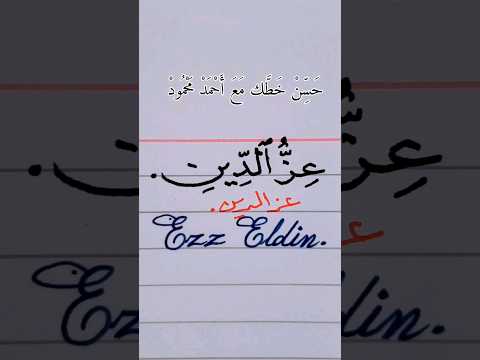 حَسِّنْ خَطَّك مَعَ أَحْمَدْ مَحْمُودْ
عِزُّ ٱلدِّينِ.
عز الدين.
Ezz Eldin.